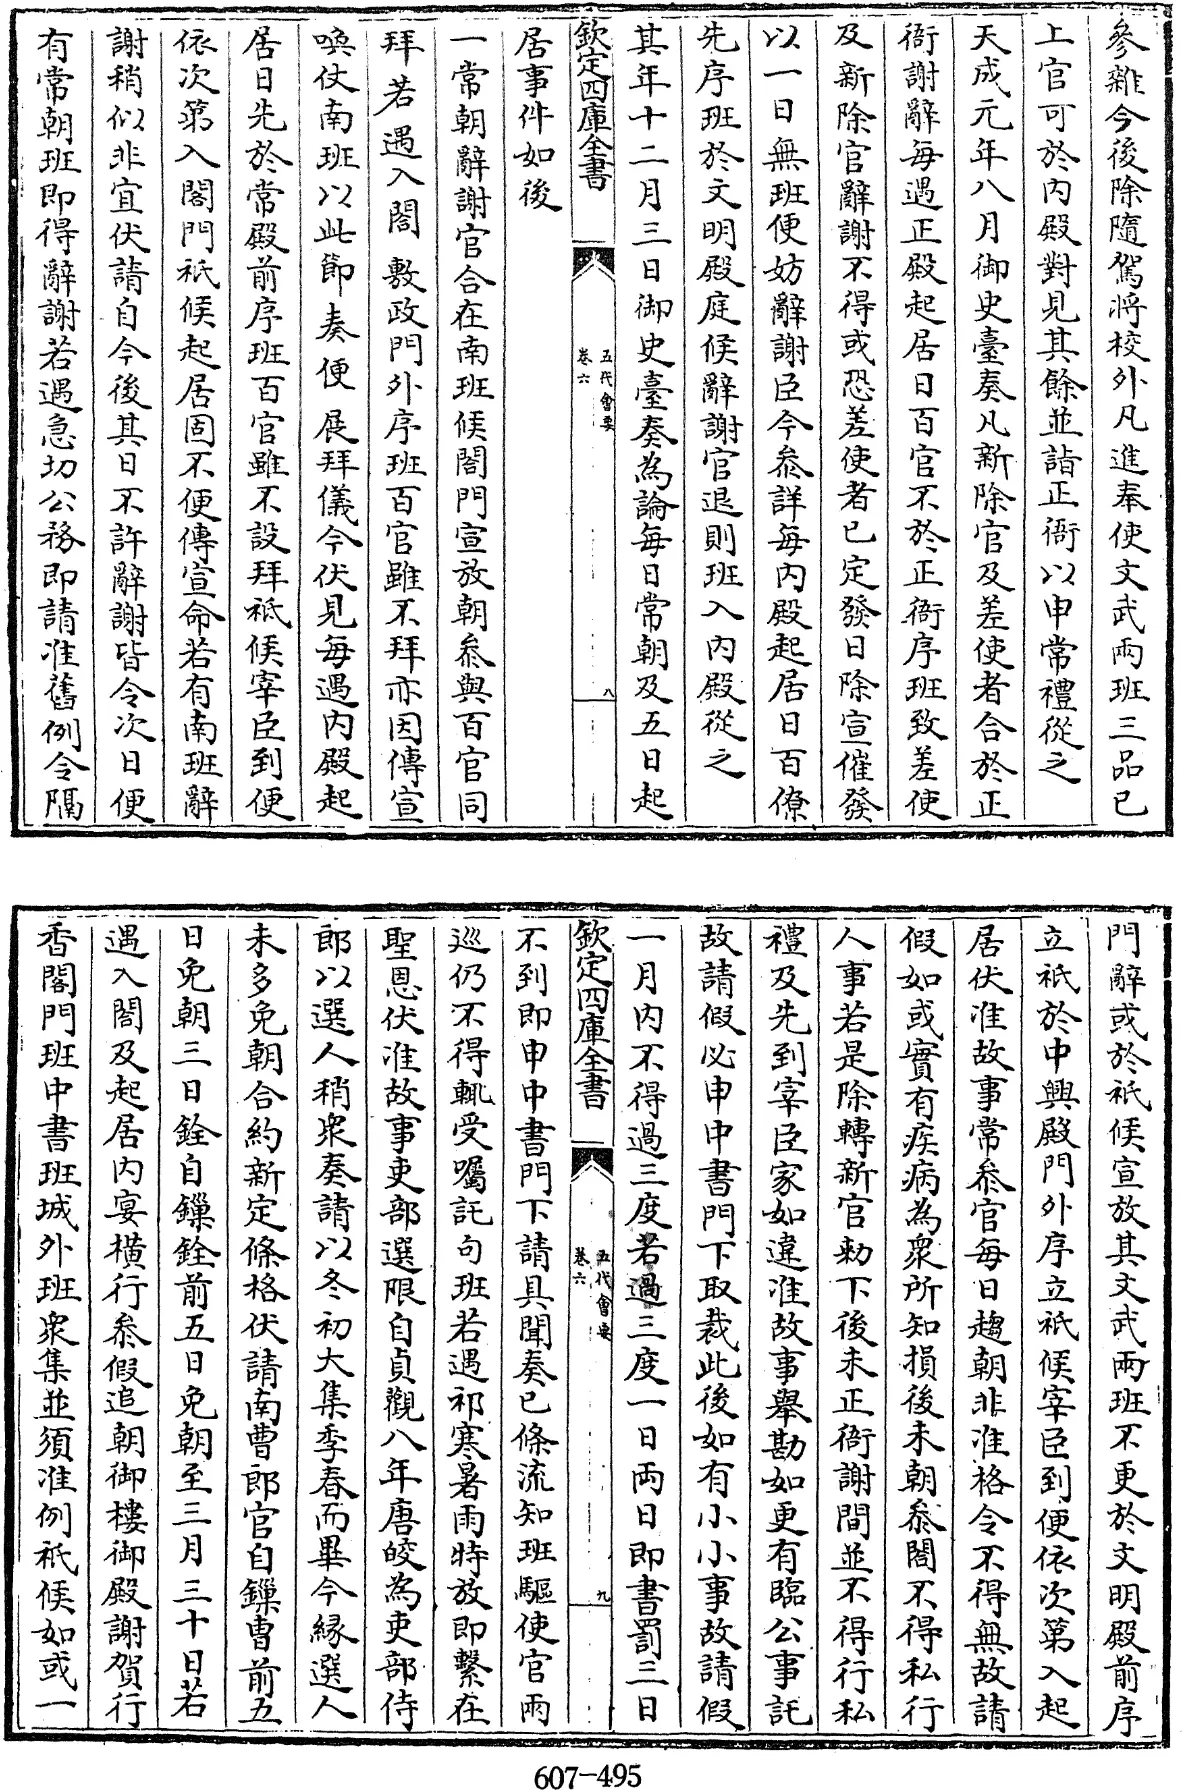 參雜今後除隨駕將校外凡進奉使文武兩班三品已
上官可於内殿對見其餘並詣正衙以申常禮從之
天成元年八月御史臺奏凡新除官及差使者合於正
衙謝辭每遇正殿起居日百官不於正衙序班致差使
及新除官辭謝不得或恐差使者已定發日除宣催發
以一日無班便妨辭謝臣今叅詳每内殿起居日百僚
先序班於文明殿庭候辭謝官退則班入内殿從之
其年十二月三日御史臺奏為論每日常朝及五日起
欽定四庫全書
五代會要
卷六
八
居事件如後
一常朝辭謝官合在南班候閤門宣放朝叅與百官同
拜若遇入閤敷政門外序班百官雖不拜亦因傳宣
喚仗南班以此節奏便展拜儀今伏見每遇内殿起
居日先於常殿前序班百官雖不設拜祗候宰臣到便
依次第入閤門祇候起居固不便傳宣命若有南班辭
謝稍似非宜伏請自今後其日不許辭謝皆令次日便
有常朝班即得辭謝若遇急切公務即請准舊例令隔
門辭或於祇候宣放其文武兩班不更於文明殿前序
立祇於中興殿門外序立祇候宰臣到便依次第入起
居伏准故事常叅官每日趨朝非准格令不得無故請
假如或實有疾病為衆所知損後未朝叅閤不得私行
人事若是除轉新官勅下後未正衙謝間並不得行私
禮及先到宰臣家如違准故事舉勘如更有臨公事託
故請假必申中書門下取裁此後如有小小事故請假
一月内不得過三度若過三度一日兩日即書罰三日
欽定四庫全書
五代會要
卷六
九
不到即申中書門下請具聞奏已條流知班驅使官兩
巡仍不得輒受囑託句班若遇祁寒暑雨特放即繫在
聖恩伏准故事吏部選限自貞觀八年唐皎為吏部侍
郎以選人稍衆奏請以冬初大集季春而畢今縁選人
未多免朝合約新定條格伏請南曹郎官自鏁曹前五
日免朝三日銓自鏁銓前五日免朝至三月三十日若
遇入閤及起居内宴横行叅假追朝御樓御殿謝賀行
香閤門班中書班城外班衆集並須准例祇候如或一
607-495